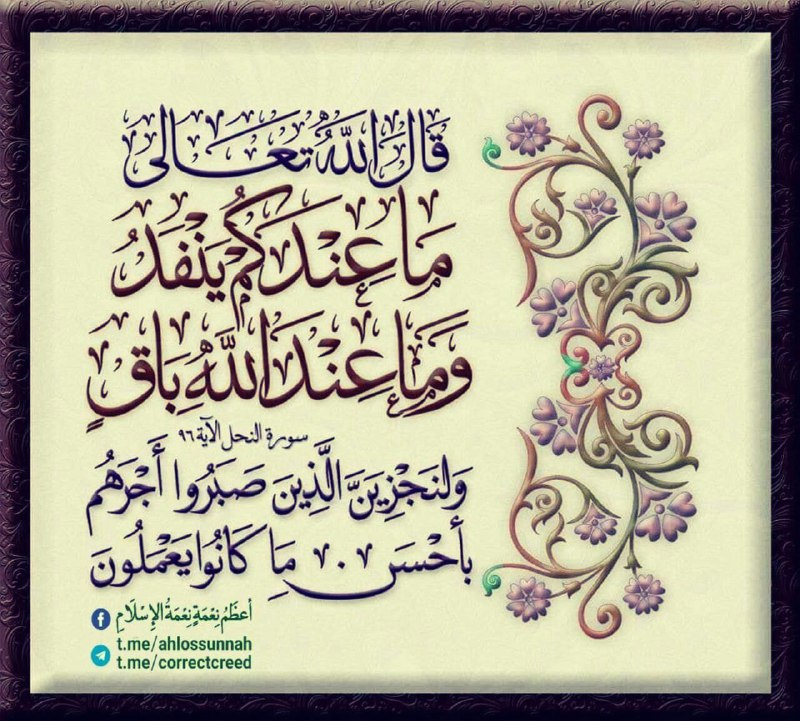 قَالَ اللَّهُ تَعَالَى
مَا عِنْدَكُمْ يَنْفَدُ
وَمَا عِنْدَ اللَّهِ بَاقٍ
سورة النحل الآية ٩٦
وَلَنَجْزِيَنَّ الَّذِينَ صَبَرُوا أَجْرَهُم
بِأَحْسَنِ مَا كَانُوا يَعْمَلُونَ
أعظَمُ نِعْمَةٍ نِعْمَةُ الإِسْلَامِ
t.me/ahlossunnah
t.me/correctcreed